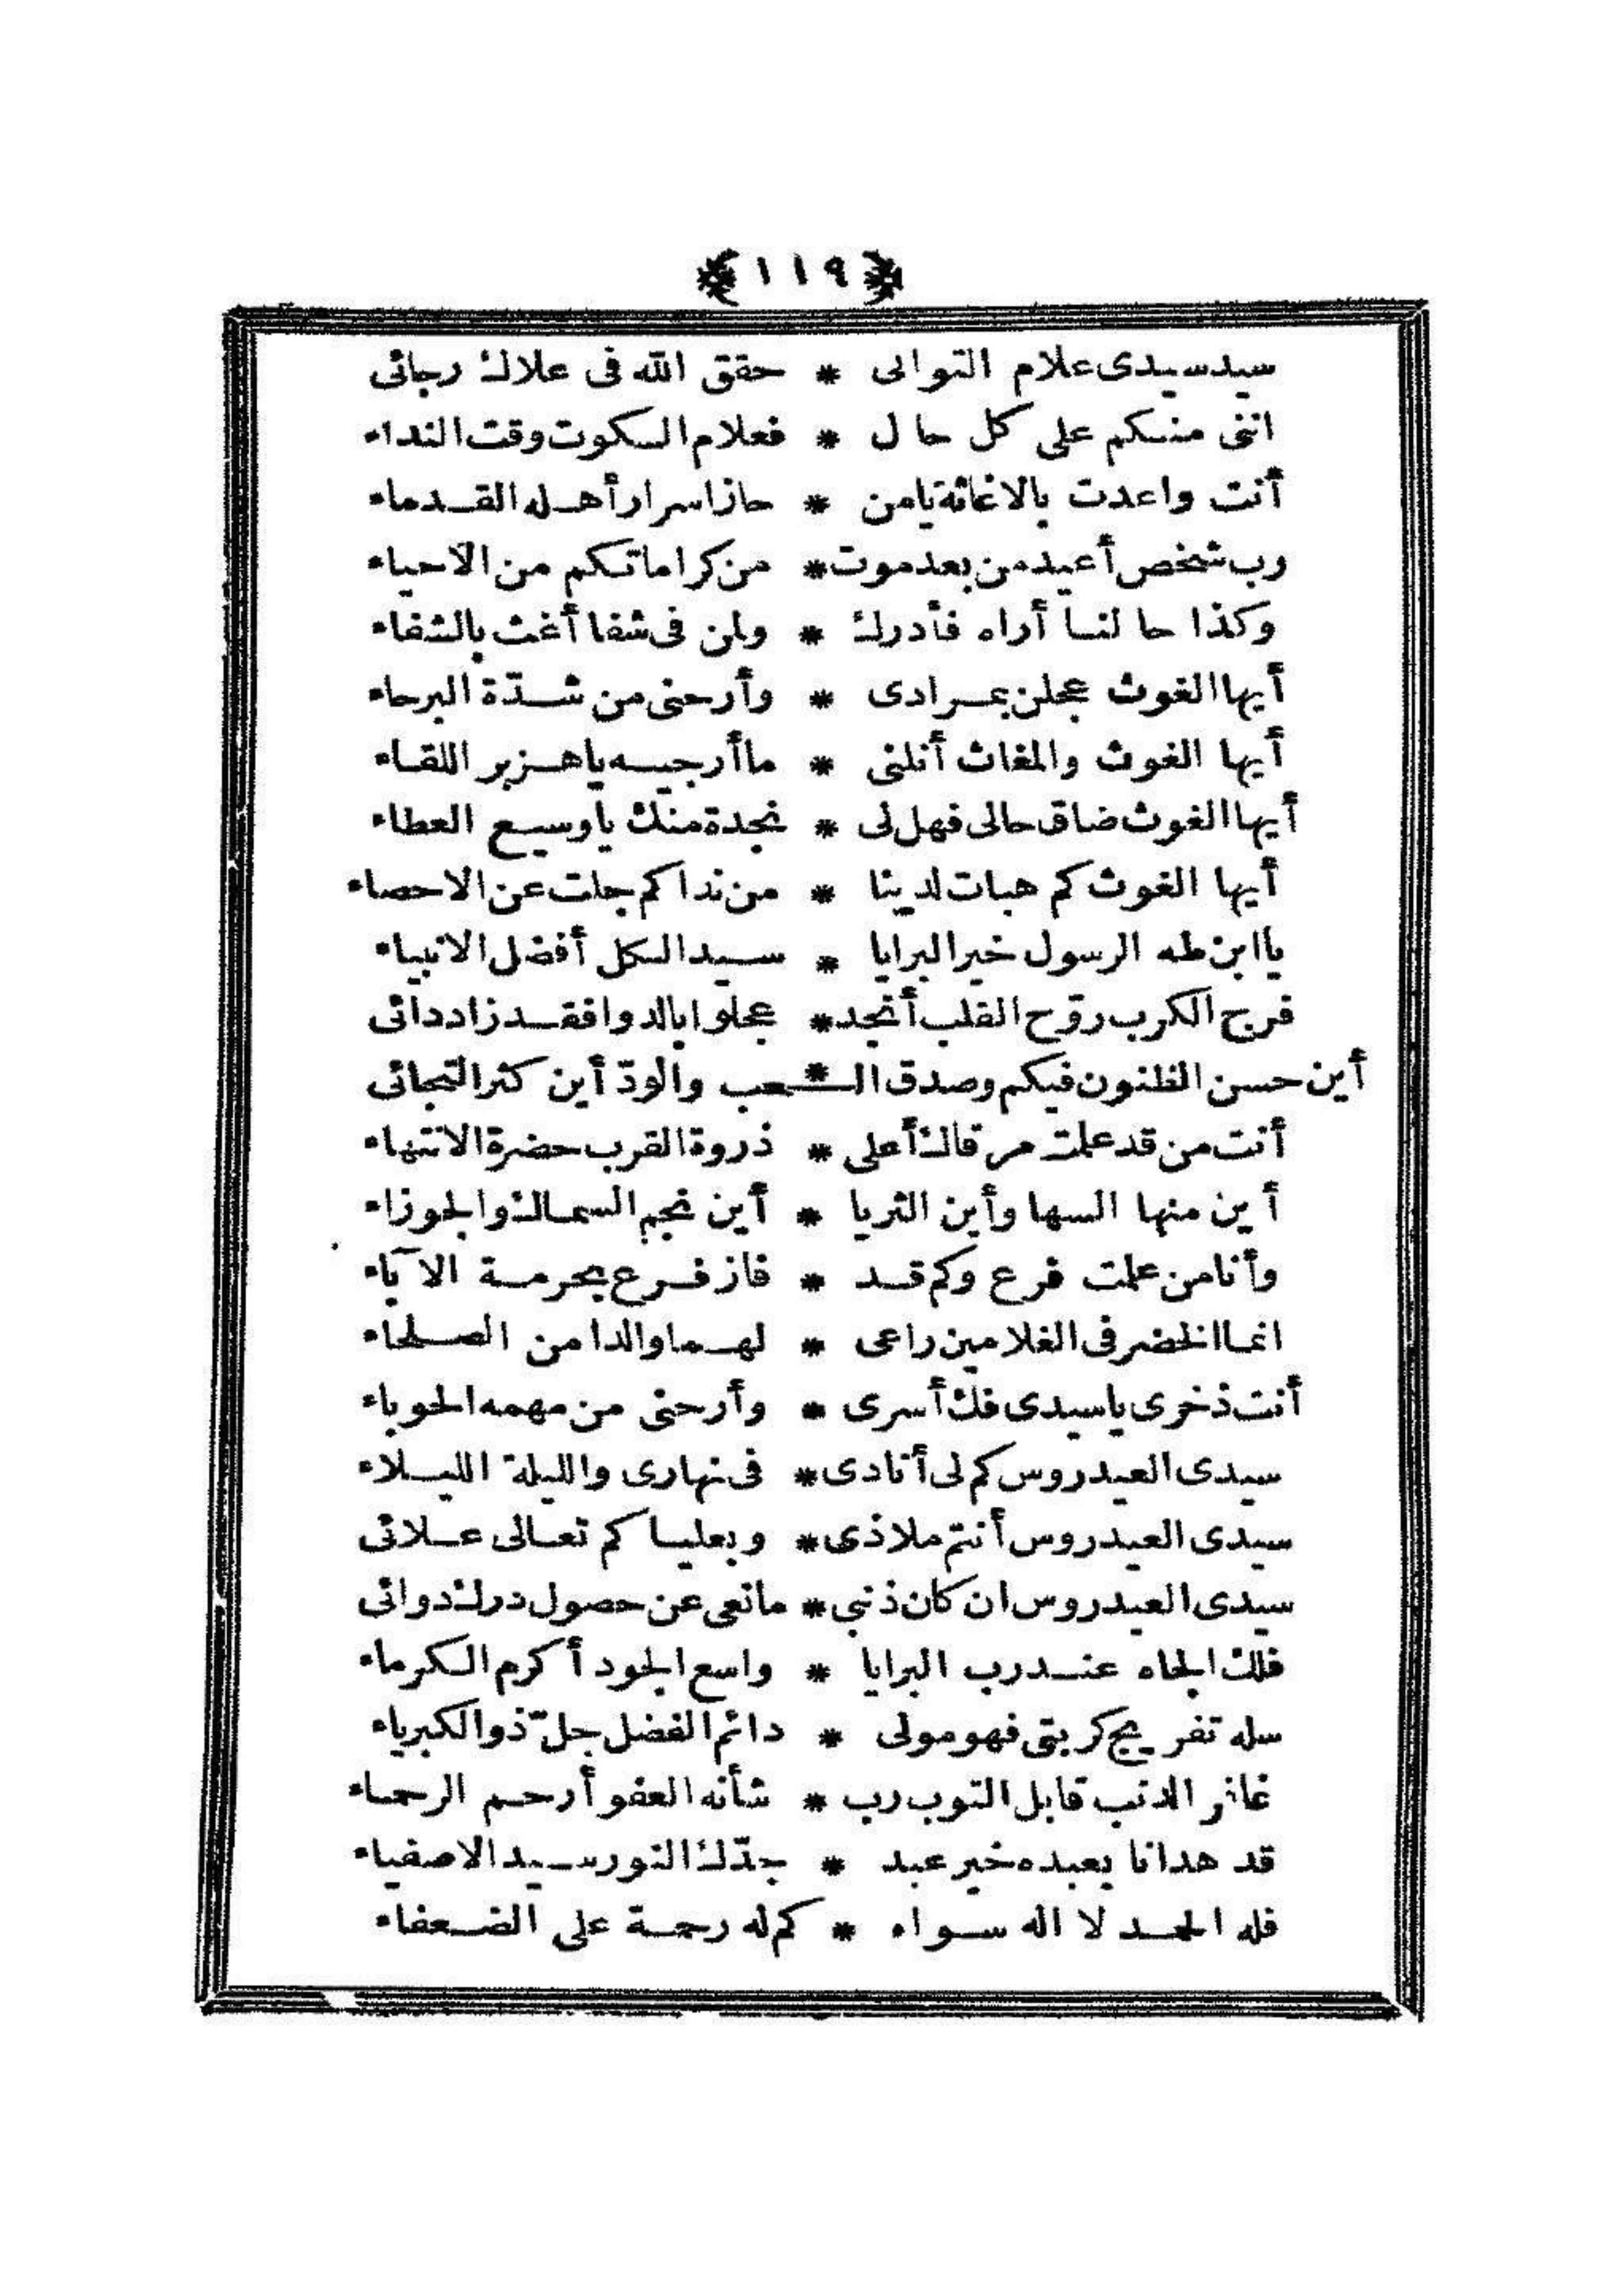 ﴿١١٩﴾
سيد سيدى علام التوانى * حقق الله فى علاك رجائى
اننى منكم على كل حال * فعلام السكوت وقت النداء
أنت واعدت بالاغاثة يامن * حاز اسرار أهله القدماء
رب شخص أعيد من بعد موت * من كراماتكم من الاحياء
وكذا حالنا أراه فأدرك * ولمن فى شفا أغث بالشفاء
أيها الغوث عجلن بمرادى * وأرحنى من شدّة البرحاء
أيها الغوث والمغاث أنلنى * ما أرجيه ياهزبر اللقاء
أيها الغوث ضاق حالى فهل لى * نجدة منك ياوسيع العطاء
أيها الغوث كم هبات لدينا * من نداكم جلت عن الاحصاء
يا ابن طه الرسول خير البرايا * سيد الكل أفضل الانبياء
فرج الكرب روّح القلب أنجد * عجلوا بالدوا فقد زاد دائى
أين حسن الظنون فيكم وصدق الـ * ـحب والودّ أين كثر التجائى
أنت من قد علمت مرقاك أعلى * ذروة القرب حضرة الانتهاء
أين منها السها وأين الثريا * أين نجم السماك والجوزاء
وأنا من علمت فرع وكم قد * فاز فرع بحرمة الآباء
انما الخضر فى الغلامين راعى * لهما والدا من الصلحاء
أنت ذخرى ياسيدى فك أسرى * وأرحنى من مهمه الحوباء
سيدى العيدروس كم لى أنادى * فى نهارى والليلة الليلاء
سيدى العيدروس أنتم ملاذى * وبعلياكم تعالى علائى
سيدى العيدروس ان كان ذنبى * مانعى عن حصول درك دوائى
فلك الجاه عند رب البرايا * واسع الجود أكرم الكرماء
سله تفريج كربتى فهو مولى * دائم الفضل جلّ ذو الكبرياء
غافر الذنب قابل التوب رب * شأنه العفو أرحم الرحماء
قد هدانا بعبده خير عبد * جدّك النور سيد الاصفياء
فله الحمد لا اله سواه * كم له رحمة على الضعفاء